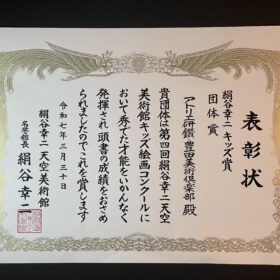 表彰状
絹谷幸二 キッズ賞
団体賞
アトリエ研鑽 豊田美術倶楽部 殿
貴団体は第四回絹谷幸二 天空
美術館キッズ絵画コンクールに
おいて秀でた才能をいかんなく
発揮され 頭書の成績をおさめ
られましたのでこれを賞します
令和七年三月三十日
絹谷幸二 天空美術館
名誉館長 絹谷幸二